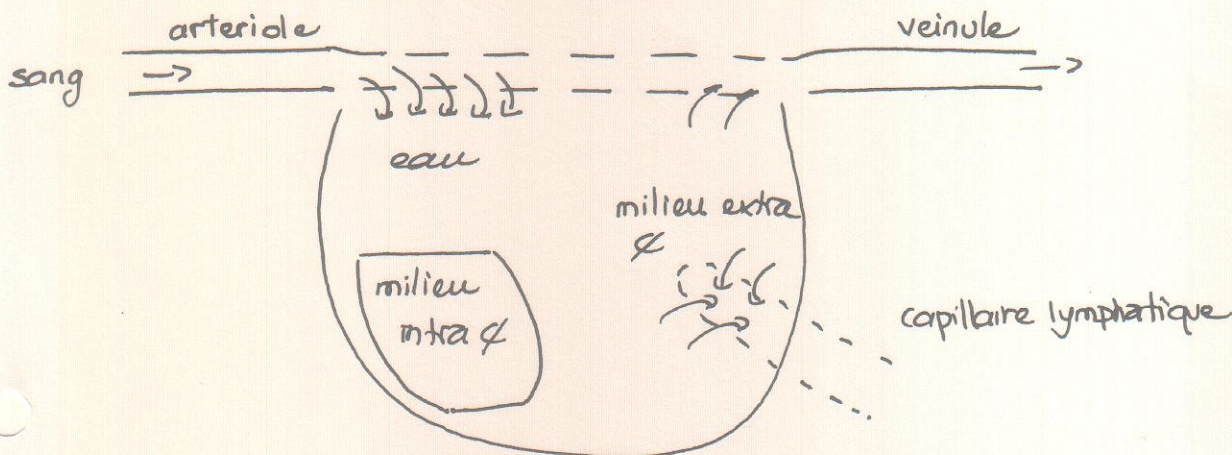 arteriole
veinule
sang
eau
milieu extra
¢
milieu
intra ¢
capillaire lymphatique